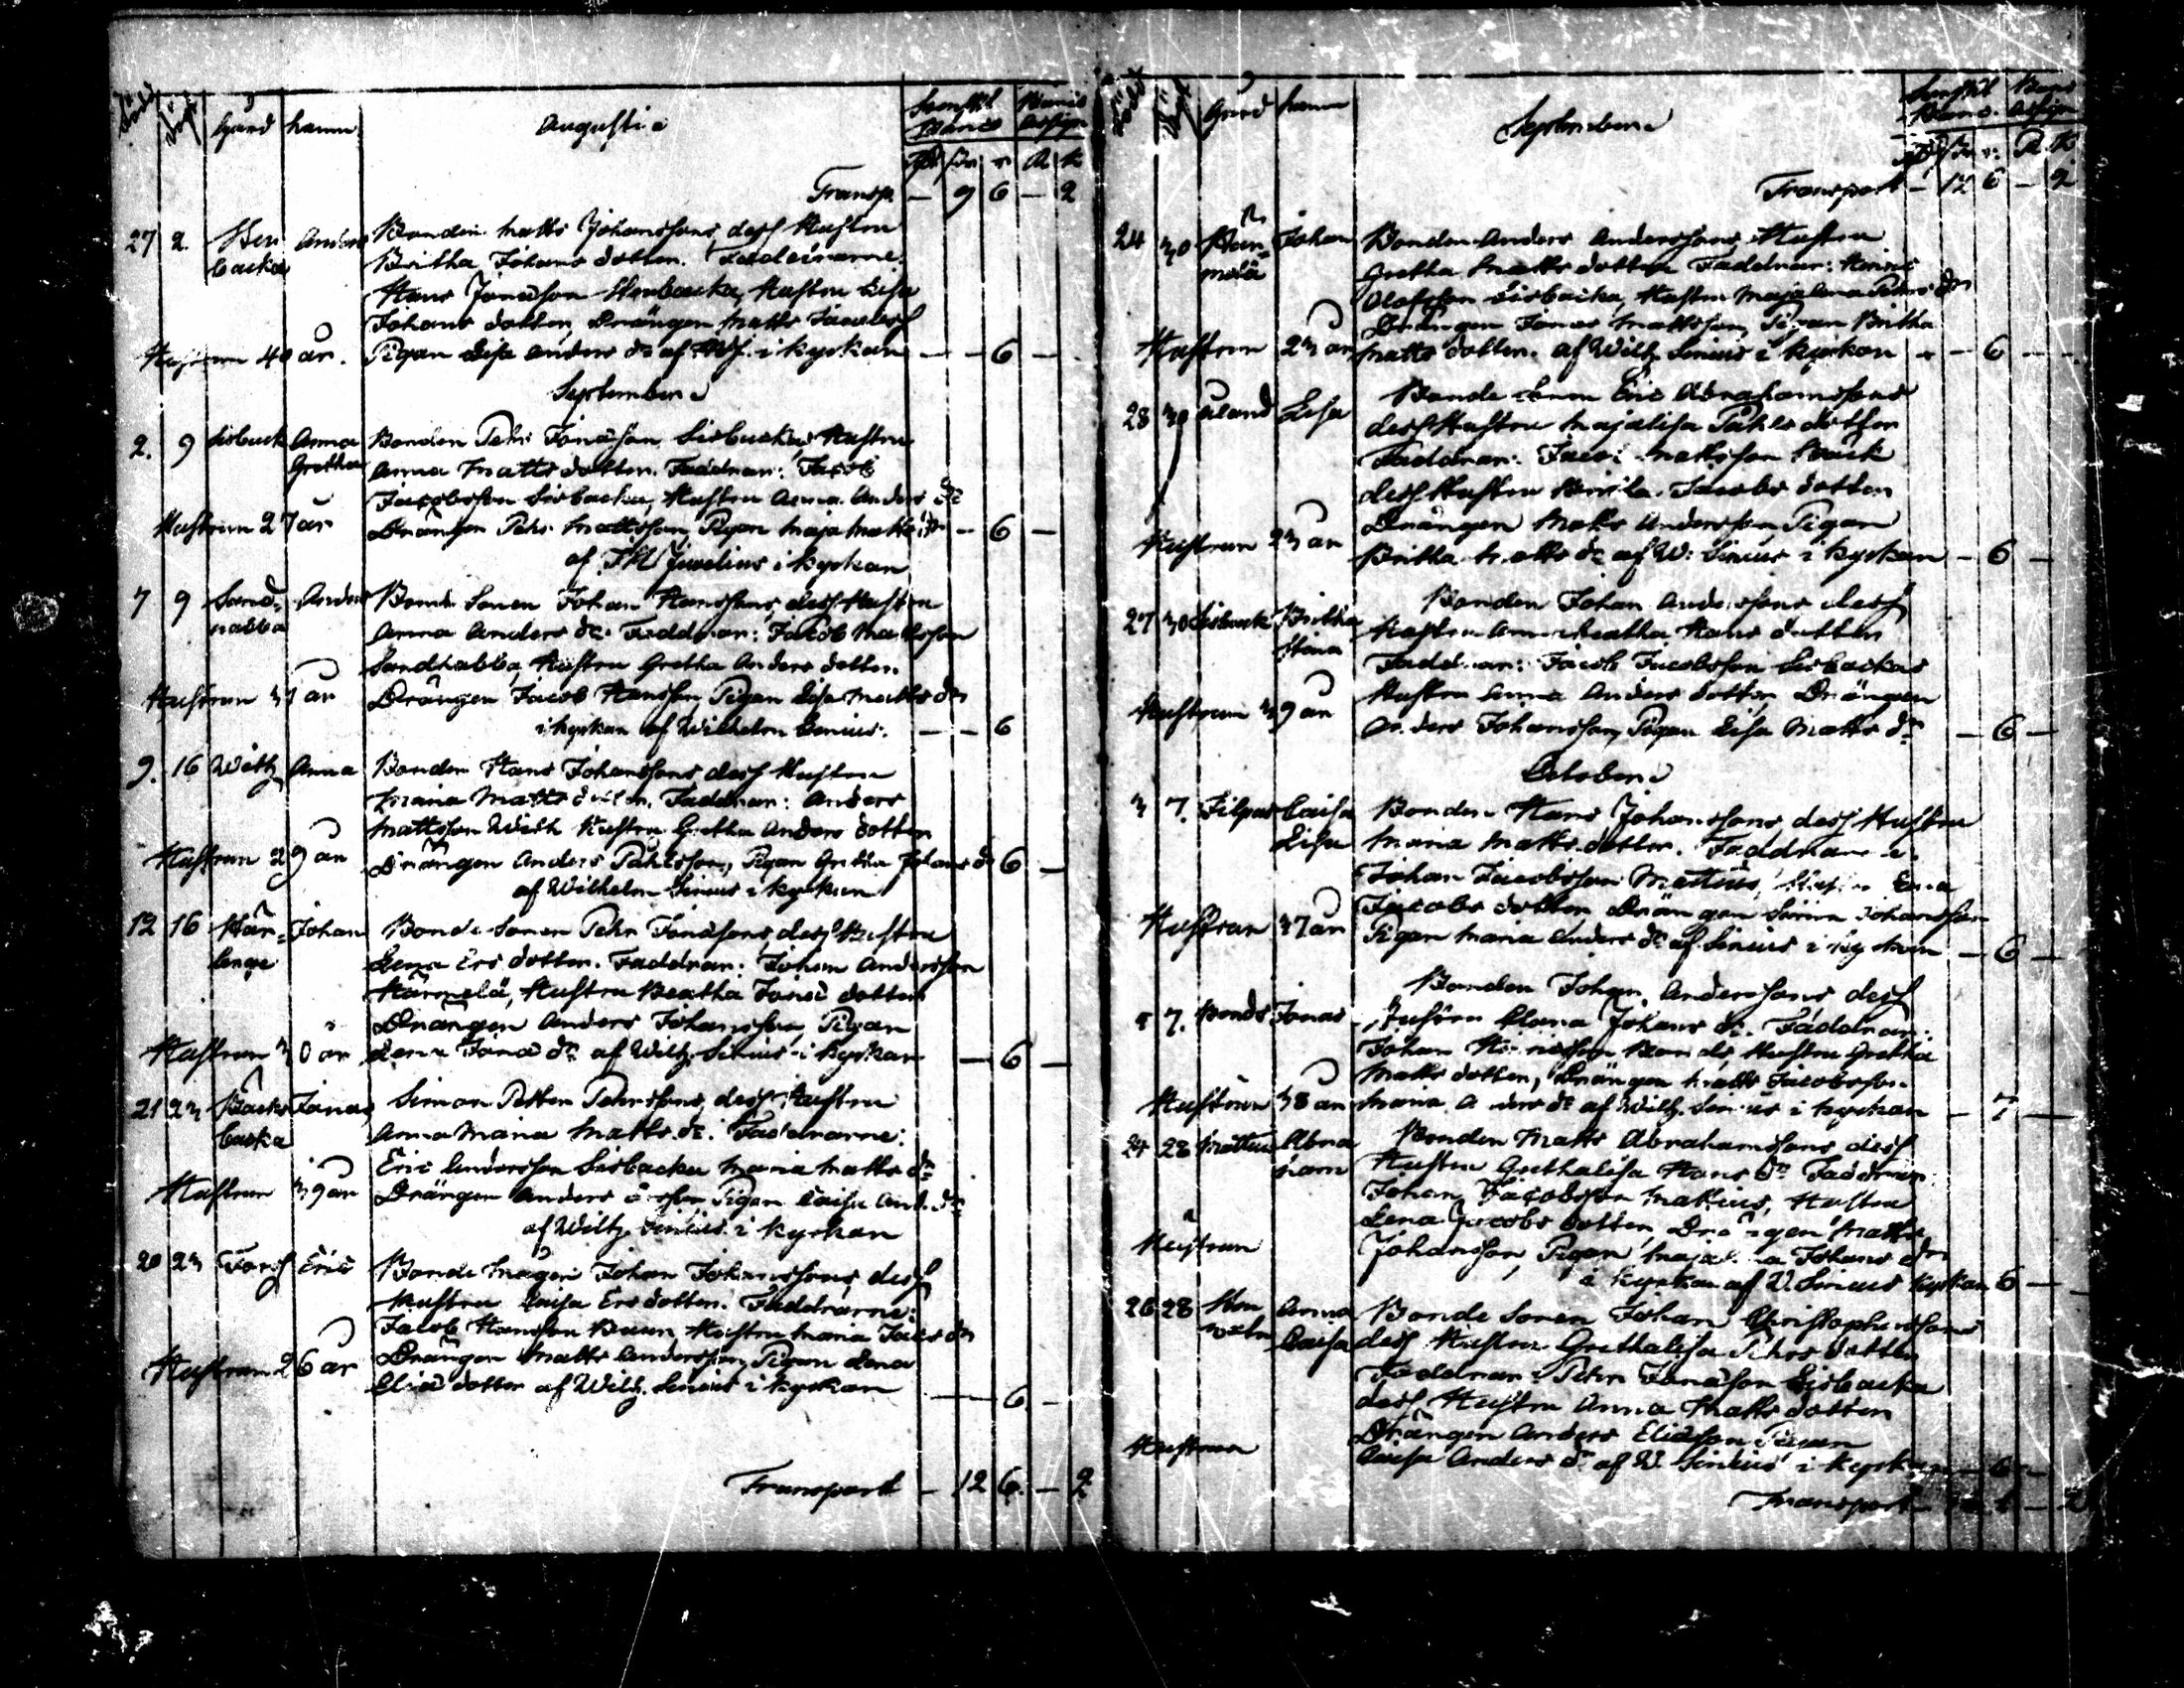 Född Döpt Gård Namn Augusti Svenskt Banco Banco Assign.
Transp. — 9 6 — 2
27 2. Sten backa Anders Bonden Matts Johanssons, dess Hustru
Britha Johans dotter. Faddrarne:
Hans Jonasson Stenbacka, Hustru Lisa
Johans dotter, Drängen Matts Jacobss
Hustrun 40 år. Pigan Lisa Anders dr af i kyrkan — — 6 —
September
2. 9 Sisback Anna Gretha Bonden Pehr Jonasson Sisbackas Hustru
Anna Matts dotter. Faddrar: Jacob
Jacobsson Sisbacka, Hustru Anna Anders dr
Hustrun 27 år Drängen Pehr Mattsson, Pigan Maja Matts dr — 6 —
af Juvelius i kyrkan
7 9 Sand- nabba Anders Bonde Sonen Johan Hanssons, dess Hustru
Anna Anders dr Faddrar: Jacob Mattsson
Sandnabba, Hustru Gretha Anders dotter.
Hustrun 31 år Drängen Jacob Hansson, Pigan Lisa Matts dr
i kyrkan af Wilhelm Sirnius. — — 6
9. 16 Wäth Anna Bonden Hans Johanssons dess Hustru
Maria Matts dotter. Faddrar: Anders
Mattsson Wäth Hustru Gretha Anders dotter
Hustrun 29 år Drängen Anders Påhlsson, Pigan Gretha Johans dr 6 —
af Wilhelm Sirnius i kyrkan
12 16 Här- Johan Bonde Sonen Pehr Jonasons, dess Hustru
Lena Ers dotter. Faddrar: Johan Andersson
Härmälä, Hustru Beatha Jonas dotter
Drängen Anders Johansson, Pigan
Hustrun 30 år Lena Jonas dr af Wilh. Sirnius i kyrkan — 6 —
21 23 Backa Jonas Simon Petter Pehrssons, dess Hustru
Anna Maria Matts dr. Faddrarne:
Eric Andersson Sisbacka Maria Matts dr
Hustrun 39 år Drängen Anders Ersson Pigan Caisa And. dr
af Wilh. Sirnius i kyrkan
20 23 Forss Eric Bonde Mågen Johan Johanssons, dess
Hustru Caisa Ers dotter. Faddrarne:
Jacob Hansson Hustru Maria Jacobs dr
Hustrun 26 år Drängen Matts Andersson, Pigan Lena
Elias dotter af Wilh. Sirnius i kyrkan — 6 —
Transport — 12 6. — 2
Född Döpt Gård Namn September Svenskt Banco. Banco Assign.
Transport — 12 6 — 2
24 30 Johan Bonden Anders Anderssons Hustru
Gretha Matts dotter Faddrar:
Olofsson Sisbacka, Hustru Majalena Pehrs dr
Drängen Jonas Mattsson, Pigan Britha
Hustrun 23 år Matts dotter. af Wilh. Sirnius i kyrkan — — 6 —
28 30 Åland Lisa Bonde Sonen Eric Abrahamssons
dess Hustru Majalisa Påhls dotter
Faddrar. Jacob Mattsson
dess Hustru Jacobs dotter
Drängen Matts Andersson, Pigan
Hustrun 23 år Britha Matts dr af W: Sirnius i kyrkan — 6 —
27 30 Sisback Britha Stina Bonden Johan Anderssons dess
Hustru Annabeatha Hans dotter
Faddrar: Jacob Jacobsson Sisbackas
Hustru Anna Anders dotter, Drängen
Hustrun 39 år Anders Johansson, Pigan Lisa Matts dr — 6 —
October
3 7. Filpus Caisa Lisa Bonden Hans Johanssons, dess Hustru
Maria Matts dotter. Faddrarne:
Johan Jacobsson Mattius, Hustru Lena
Jacobs dotter, Drängen Simon Johansson
Hustrun 37 år Pigan Maria Anders dr af Sirnius i kyrkan — 6 —
5 7. Bonds Jonas Bonden Johan Anderssons dess
Hustru Clara Johans dr. Faddrar:
Johan Bonds, Hustru Gretha
Matts dotter, Drängen Matts Jacobsson
Hustrun 38 år Maria Anders dr af Wilh. Sirnius i kyrkan — 7 —
24 28 Mattius Abraham Bonden Matts Abrahamssons dess
Hustru Grethalisa Hans dr Faddrar
Johan Jacobsson Mattius, Hustru
Lena Jacobs dotter, Drängen Matts
Hustrun Johansson, Pigan Johans dr
i kyrkan af W. Sirnius kyrkan 6 —
26 28 Anna Caisa Bonde Sonen Johan Christopherssons
dess Hustru Grethalisa Pehrs dotter
Faddrar: Pehr Jonasson Sisbacka
dess Hustru Anna Matts dotter
Hustrun Drängen Anders Eliasson Pigan
Caisa Anders dr af W. Sirnius i kyrkan — 6 —
Transport